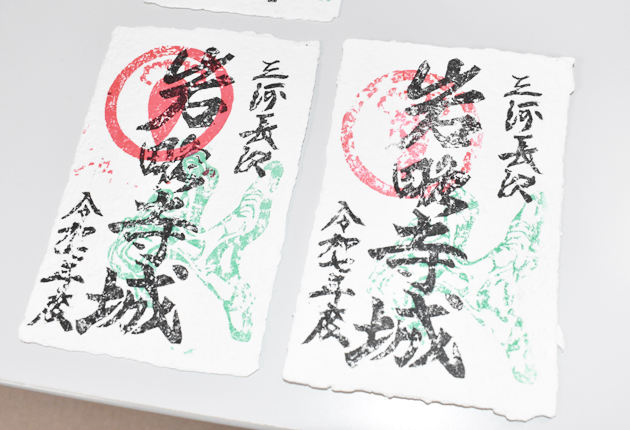 三河長沢
岩略寺城
令和七年度
三河長沢
岩略寺城
令和七年度